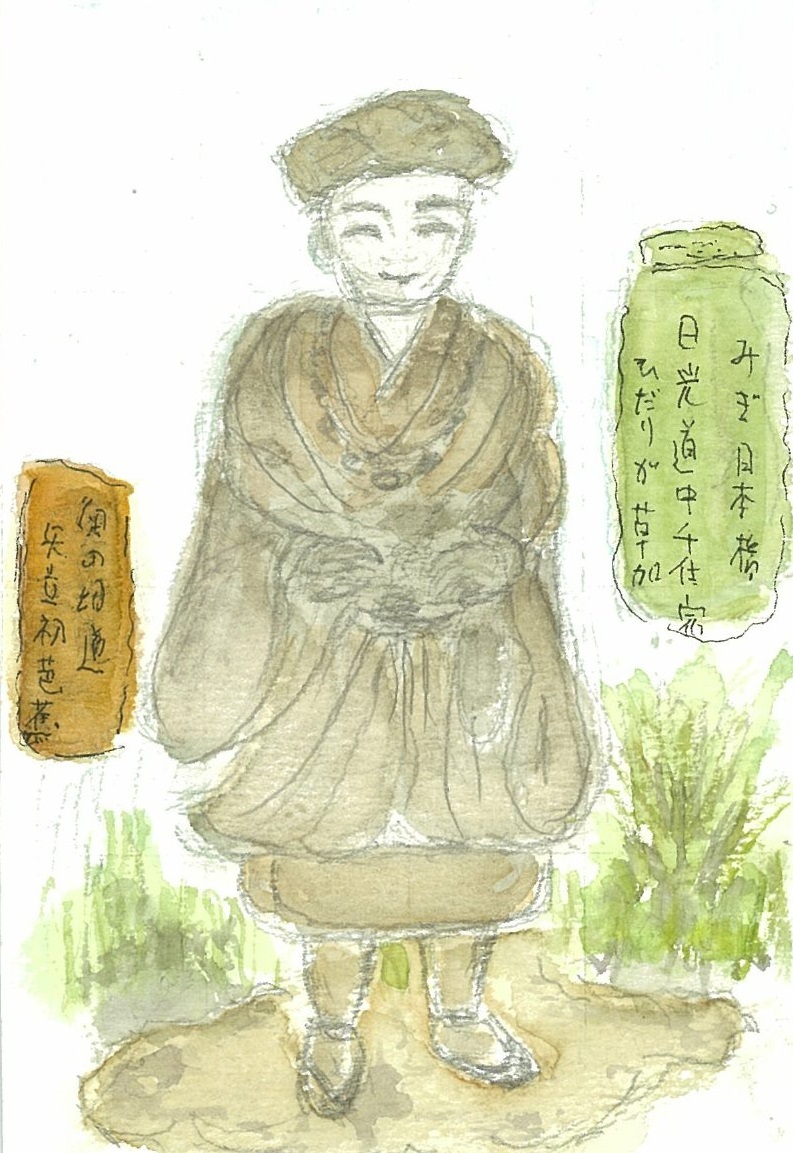 みぎ日本橋
日光道中千住宿
ひだりが草加
奥の細道
矢立初芭蕉